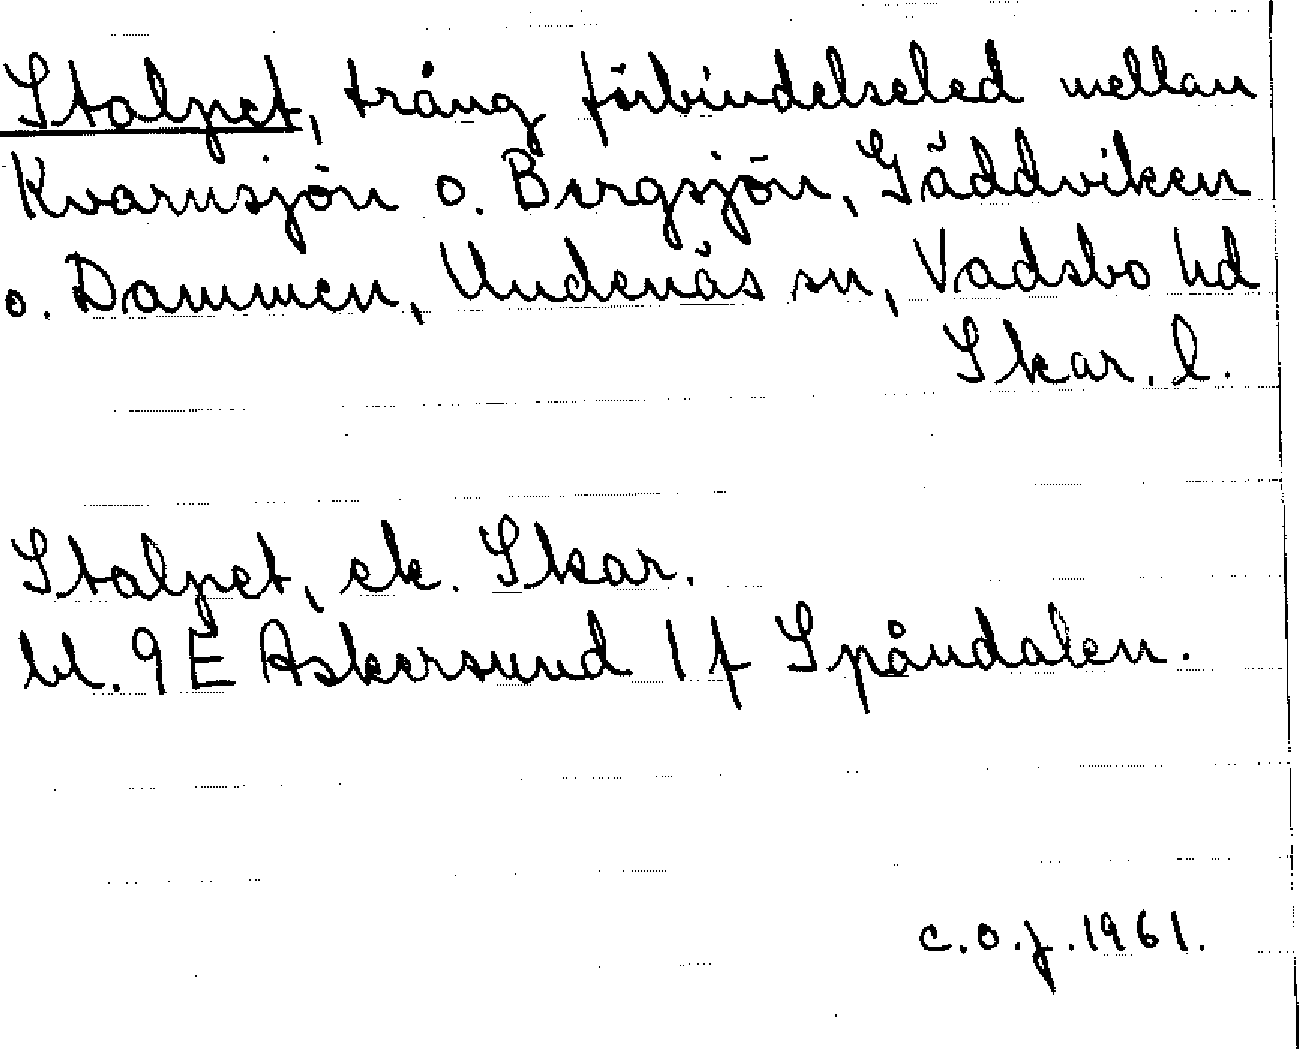 Stalpet, trång förbindelseled mellan
Kvarnsjön o. Bergsjön, Gäddviken
o. Dammen, Undenäs sn, Vadsbo hd
Skar. l.
Stalpet, ek. Skar.
bl. 9 E Askersund 1 f Spåndalen.
c.o.j. 1961.